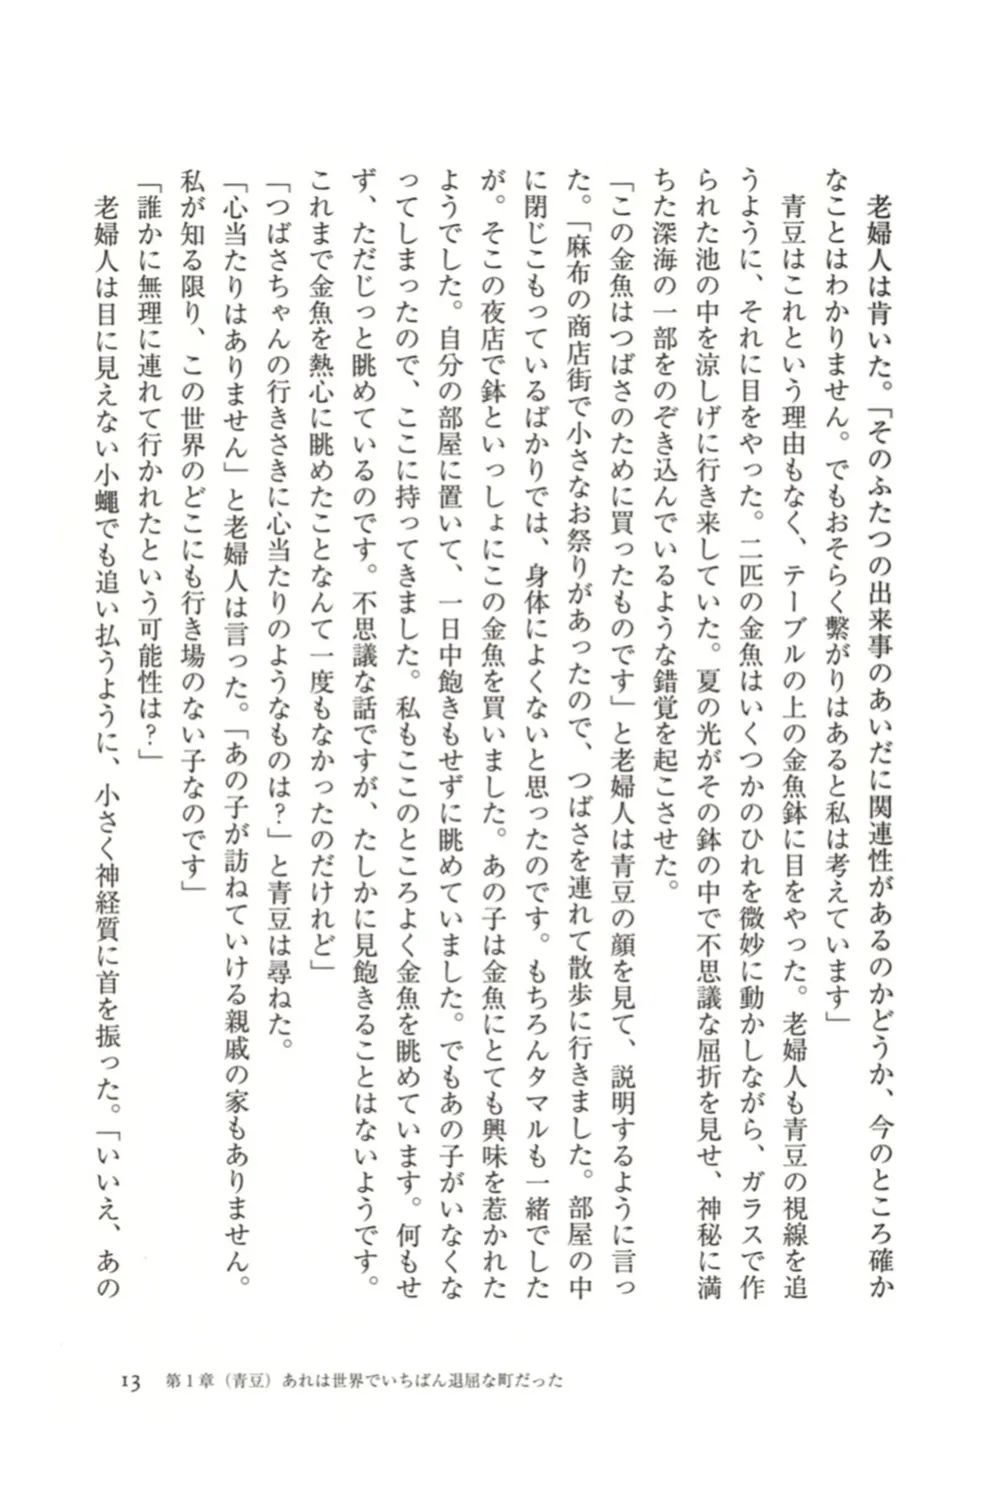 老婦人は肯いた。「そのふたつの出来事のあいだに関連性があるのかどうか、今のところ確か
なことはわかりません。でもおそらく繫がりはあると私は考えています」
　青豆はこれという理由もなく、テーブルの上の金魚鉢に目をやった。老婦人も青豆の視線を追
うように、それに目をやった。二匹の金魚はいくつかのひれを微妙に動かしながら、ガラスで作
られた池の中を涼しげに行き来していた。夏の光がその鉢の中で不思議な屈折を見せ、神秘に満
ちた深海の一部をのぞき込んでいるような錯覚を起こさせた。
「この金魚はつばさのために買ったものです」と老婦人は青豆の顔を見て、説明するように言っ
た。「麻布の商店街で小さなお祭りがあったので、つばさを連れて散歩に行きました。部屋の中
に閉じこもっているばかりでは、身体によくないと思ったのです。もちろんタマルも一緒でした
が。そこの夜店で鉢といっしょにこの金魚を買いました。あの子は金魚にとても興味を惹かれた
ようでした。自分の部屋に置いて、一日中飽きもせずに眺めていました。でもあの子がいなくな
ってしまったので、ここに持ってきました。私もここのところよく金魚を眺めています。何もせ
ず、ただじっと眺めているのです。不思議な話ですが、たしかに見飽きることはないようです。
これまで金魚を熱心に眺めたことなんて一度もなかったのだけれど」
「つばさちゃんの行きさきに心当たりのようなものは？」と青豆は尋ねた。
「心当たりはありません」と老婦人は言った。「あの子が訪ねていける親戚の家もありません。
私が知る限り、この世界のどこにも行き場のない子なのです」
「誰かに無理に連れて行かれたという可能性は？」
　老婦人は目に見えない小蠅でも追い払うように、小さく神経質に首を振った。「いいえ、あの
13　第1章（青豆）あれは世界でいちばん退屈な町だった